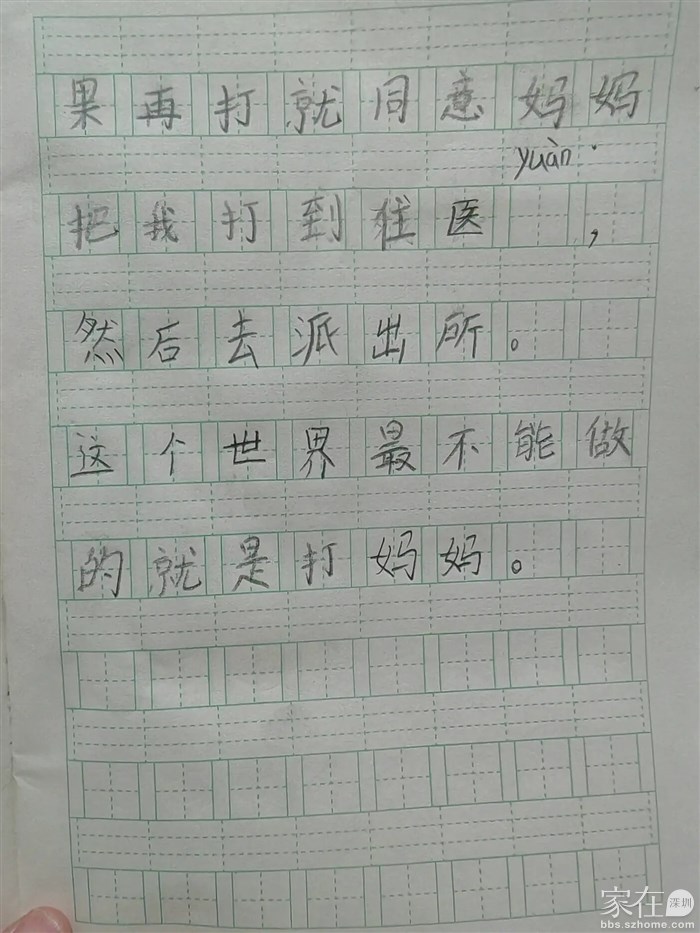 果再打就同意妈妈
yuàn
把我打到住医 ，
然后去派出所。
这个世界最不能做
的就是打妈妈。
家在深圳
bbs.szhome.com